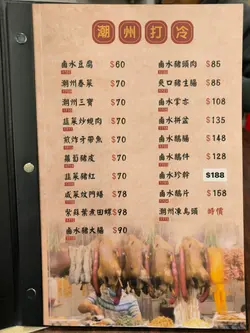 潮州打冷
鹵水豆腐 $60
潮州春菜 $70
潮州三寶 $70
韮菜炒燒肉 $70
煎炸牙帶魚 $70
蘿蔔豬皮 $70
韮菜豬紅 $70
咸菜炆門鱔 $98
紫蘇煮田螺 $98
鹵水豬大腸 $90
鹵水豬頭肉 $85
爽口豬生腸 $85
鹵水掌亦 $108
鹵水拼盆 $135
鹵水鵝腸 $148
鹵水鵝 $128
鹵水珍 $188
鹵水鵝片 $158
潮州凍烏頭 時價